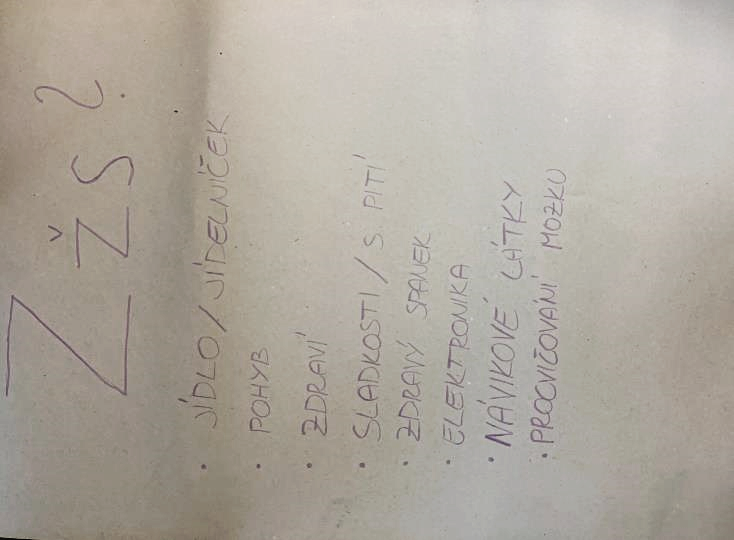 ZŽS?
• JÍDLO / JÍDELNÍČEK
• POHYB
• ZDRAVÍ
• SLADKOSTI / S. PITÍ
• ZDRAVÝ SPANEK
• ELEKTRONIKA
• NÁVIKOVÉ LÁTKY
• PROCVIČOVÁNÍ MOZKU